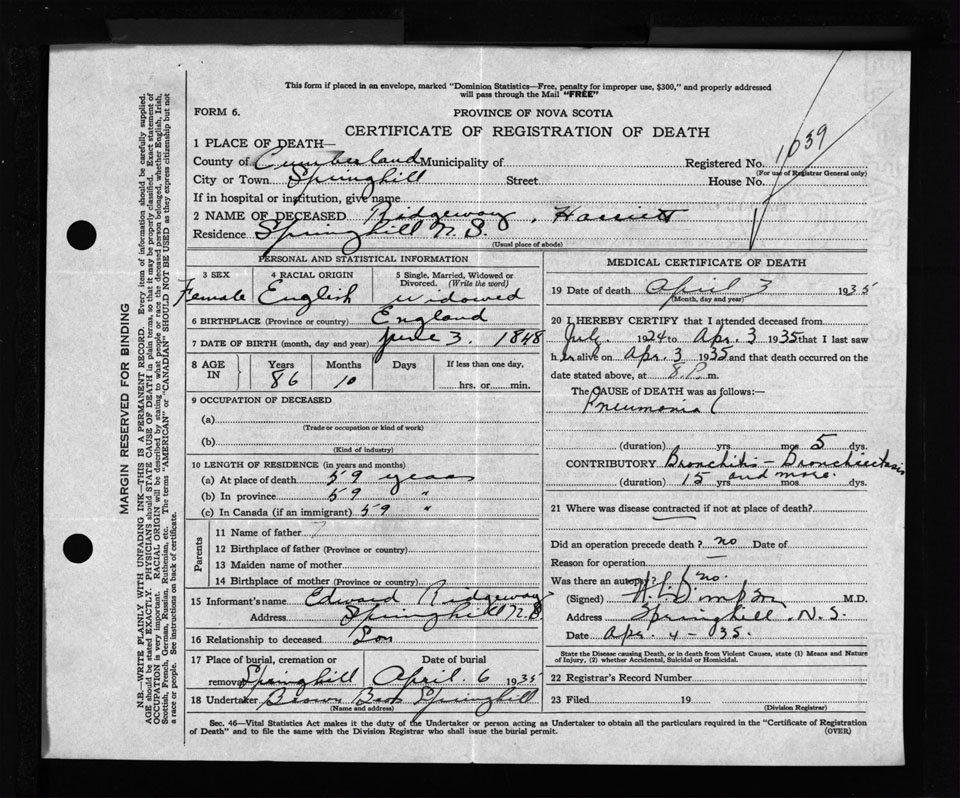 This form if placed in an envelope, marked "Dominion Statistics—Free, penalty for improper use, $300," and properly addressed
will pass through the Mail "FREE"
FORM 6.
PROVINCE OF NOVA SCOTIA
CERTIFICATE OF REGISTRATION OF DEATH
1 PLACE OF DEATH—
County of Cumberland Municipality of Registered No. 1039
(For use of Registrar General only)
City or Town Springhill Street House No.
If in hospital or institution, give name
2 NAME OF DECEASED Ridgeway, Harriett
Residence Springhill N.S.
(Usual place of abode)
PERSONAL AND STATISTICAL INFORMATION
3 SEX 4 RACIAL ORIGIN 5 Single, Married, Widowed or
Divorced. (Write the word)
Female English Widowed
6 BIRTHPLACE (Province or country) England
7 DATE OF BIRTH (month, day and year) June 3. 1848
8 AGE IN Years Months Days If less than one day,
86 10 hrs. or min.
9 OCCUPATION OF DECEASED
(a)
(Trade or occupation or kind of work)
(b)
(Kind of industry)
10 LENGTH OF RESIDENCE (in years and months)
(a) At place of death 59 years
(b) In province 59 "
(c) In Canada (if an immigrant) 59 "
Parents
11 Name of father ?
12 Birthplace of father (Province or country)
13 Maiden name of mother
14 Birthplace of mother (Province or country)
15 Informant's name Edward Ridgeway
Address Springhill N.S.
16 Relationship to deceased Son
17 Place of burial, cremation or Date of burial
removal Springhill April 6 1935
18 Undertaker Brown Bros Springhill
(Name and address)
MEDICAL CERTIFICATE OF DEATH
19 Date of death April 3 1935
(Month, day and year)
20 I HEREBY CERTIFY that I attended deceased from
July 1924 to Apr. 3 1935 that I last saw
her alive on Apr. 3 1935 and that death occurred on the
date stated above, at 8 P.m.
The CAUSE OF DEATH was as follows:—
Pneumonia
(duration) yrs. mos. 5 dys.
CONTRIBUTORY Bronchitis - Bronchiectasis
(duration) 15 yrs. and more. mos. dys.
21 Where was disease contracted if not at place of death?
Did an operation precede death? no Date of
Reason for operation —
Was there an autopsy? no.
(Signed) Simpson M.D.
Address Springhill, N.S.
Date Apr. 4 - 35.
State the Disease causing Death, or in death from Violent Causes, state (1) Means and Nature
of Injury, (2) whether Accidental, Suicidal or Homicidal.
22 Registrar's Record Number
23 Filed 19
(Division Registrar)
Sec. 46—Vital Statistics Act makes it the duty of the Undertaker or person acting as Undertaker to obtain all the particulars required in the "Certificate of Registration
of Death" and to file the same with the Division Registrar who shall issue the burial permit. (OVER)
MARGIN RESERVED FOR BINDING
N.B.—WRITE PLAINLY WITH UNFADING INK—THIS IS A PERMANENT RECORD. Every item of information should be carefully supplied.
AGE should be stated EXACTLY. PHYSICIANS should STATE CAUSE OF DEATH in plain terms, so that it may be properly classified. Exact statement of
OCCUPATION is very important. RACIAL ORIGIN will be described by stating to what people or race the deceased person belonged, whether English, Irish,
Scottish, French, German, Russian, Ruthenian, etc. The terms "AMERICAN" or "CANADIAN" SHOULD NOT BE USED as they express citizenship but not
a race or people. See instructions on back of certificate.